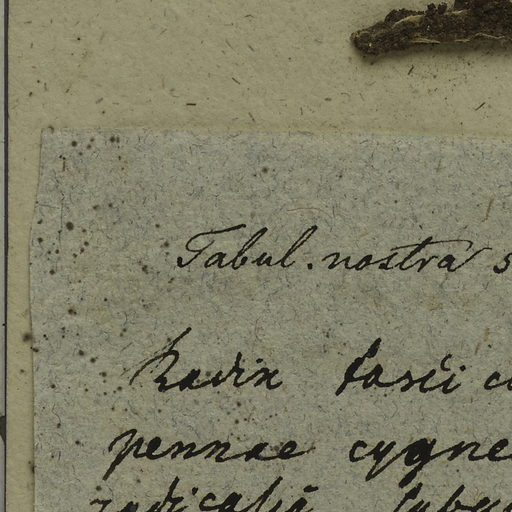 Tabul. nostra s
Radix fasci c
pennae cygne
radicalia subu